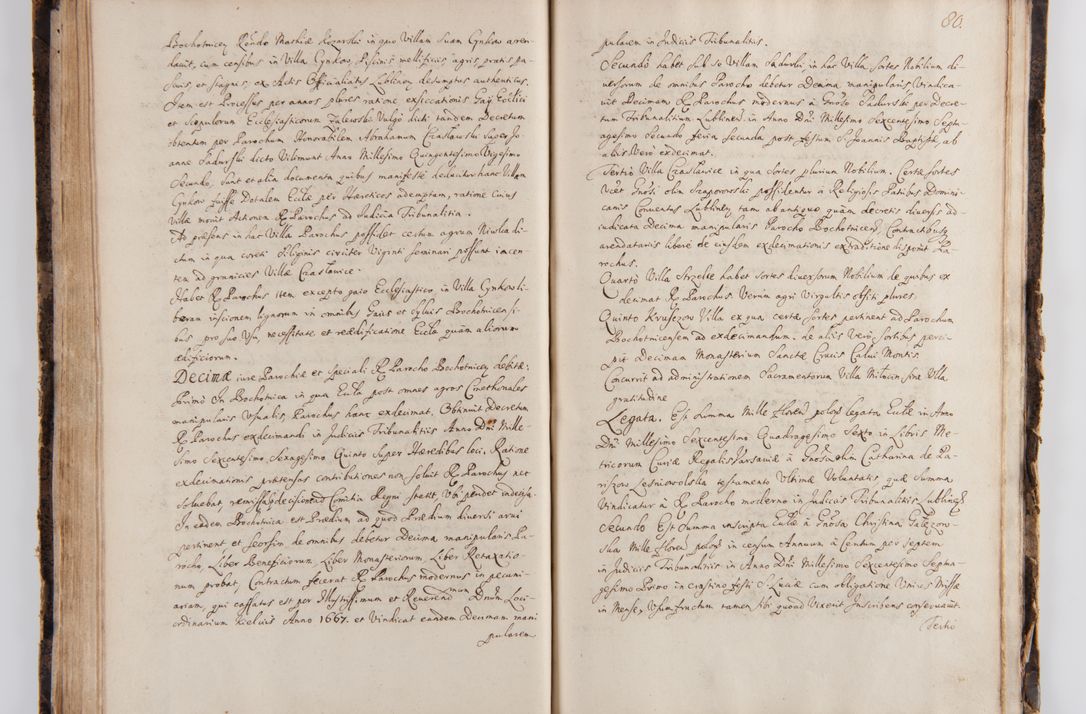 Bochotnicey Rondo Mathiæ Kozarski in quo Villam Suam Cynkow aren-
dauit, cum censibus in Villa Cynkow, Piscinis mellificiis, agris, pratis, pa-
scuis, et stagnis, ex Actis Officialatus Lublinen desumptus authenticus.
Item est Processus per annos plures ratione exsiccationis Gaÿ Ecclici
et Scopulorum Ecclesiasticorum Zalewski Vulgo dicti tandem Decretum
obtentum per Parochum Honorabilem Abrahamum Czasławski super Jo-
anne Sadurski dicto Vilimunt Anno Millesimo Quingentesimo Vigesimo
Secundo, Sunt et alia documenta quibus manifeste deducitur hanc Villam
Cynkow fuisse Dotalem Ecclæ per Hæreticos ademptam, ratione Cuius
Villæ mouit Actionem R Parochus ad Iudicia Tribunalitia.
Ad præsens in hac Villa Parochus possidet certum agrum Niwka di-
ctum in qua coreti Siliginis circiter Viginti seminari possunt iacen-
tem ad granicies Villæ Czasławice.
Habet R Parochus item excepto gaio Ecclesiastico, in Villa Cynkow li-
beram incisionem lignorum in omnibus Gaiis et Syluis Bochotnicen si-
bus pro suo Usu, necessitate et reædificatione Ecclæ quam aliorum
ædificiorum.
Decimæ iure Parochiæ et speciali R Parocho Bochotnicen debitæ:
Primo In Bochotnica in qua Eccla post omnes agros Cmethonales
manipularis Usualis, Parochus hanc exdecimat. Obtinuit Decretum
R Parochus exdecimandi in Iudiciis Tribunalitiis Anno Dni Mille-
simo Sexcentesimo Sexagesimo Quinto super Hæredibus loci. Ratione
exdecimationis prætensas contributiones non soluit R Parochus nec
soluebat, remissa decisione ad Comitia Regni statt. Ubi pendet indecisa.
In eadem Bochotnica est Prædium ad quod Prædium diuersi arui
pertinent et seorsim de omnibus debetur Decima manipularis Pa-
rocho, Liber Beneficiorum, Liber Monasteriorum Liber Retaxatio-
num probat, Contractum fecerat R Parochus modernus in pecuni-
ariam, qui cassatus est per Illustrissimum et Reverendmum Dnum Loci-
ordinarium Kielciis Anno 1667. et Vindicat eandem Decimam mani
pularem

80.
pularem in Iudiciis Tribunalitiis.
Secundo habet sub se Villam Sadurki in hac Villa sortes Nobilium di-
uersorum de omnibus Parocho debetur Decima manipularis Vindica-
uit Decimam R Parochus modernus à Gnoso Sadurski per Decre-
tum Tribunalitium Lublinen in Anno Dni Millesimo Sexcentesimo Septu-
agesimo Secundo feria Secunda post festum S Joannis Baptistæ, ab
aliis Vero exdecimat.
Tertio Villa Czasławice in qua sortes plurium Nobilium. Certæ sortes
Vczt Gnosi olim Szaporowski possidentur à Religiosis Patribus Domini-
canis Conuentus Lublinen tam ab antiquo quam decretis diuersis ad-
iudicata Decima manipularis Parocho Bochotnicen, Contractibus
arendatariis libere de eiusdem exdecimationis extraditione disponit Pa-
rochus.
Quarto Villa Strzelce habet sortes diuersorum Nobilium de quibus ex
decimat R Parochus Verum agri Virgultis obsiti plures.
Quinto Kruszow Villa ex qua certæ sortes pertinent ad Parochum
Bochotnicensem ad exdecimandum. de aliis Vero sortibus perci-
pit Decimam Monasterium Sanctæ Crucis Calui Montis.
Concurrit ad administrationem Sacramentorum Villa Miłocin sine Ulla
gratitudine
Legata. Est summa Mille floren polon legata Ecclæ in Anno
Dni Millesimo Sexcentesimo Quadragesimo Sexto in Libris Me-
tricorum Curiæ Regalis Varsauiæ à Gnosa olim Catharina de Pa-
riszow Lesniowolska testamento Ultimæ Voluntatis, quæ summa
Vindicatur à R Parocho moderno in Iudiciis Tribunalitiis Lublinen
Secundo Est summa inscripta Ecclæ à Gnosa Christina Gałęzow-
ska Mille floren polon in censum Annuum à Centum per septem
in Iudiciis Tribunalitiis in Anno Dni Millesimo Sexcentesimo Septua-
gesimo Primo in crastino festi S Luciæ cum obligatione Unius Missæ
in Mense, Usumfructum tamen sibi quoad Vixerit Inscribens conseruauit.
Tertio